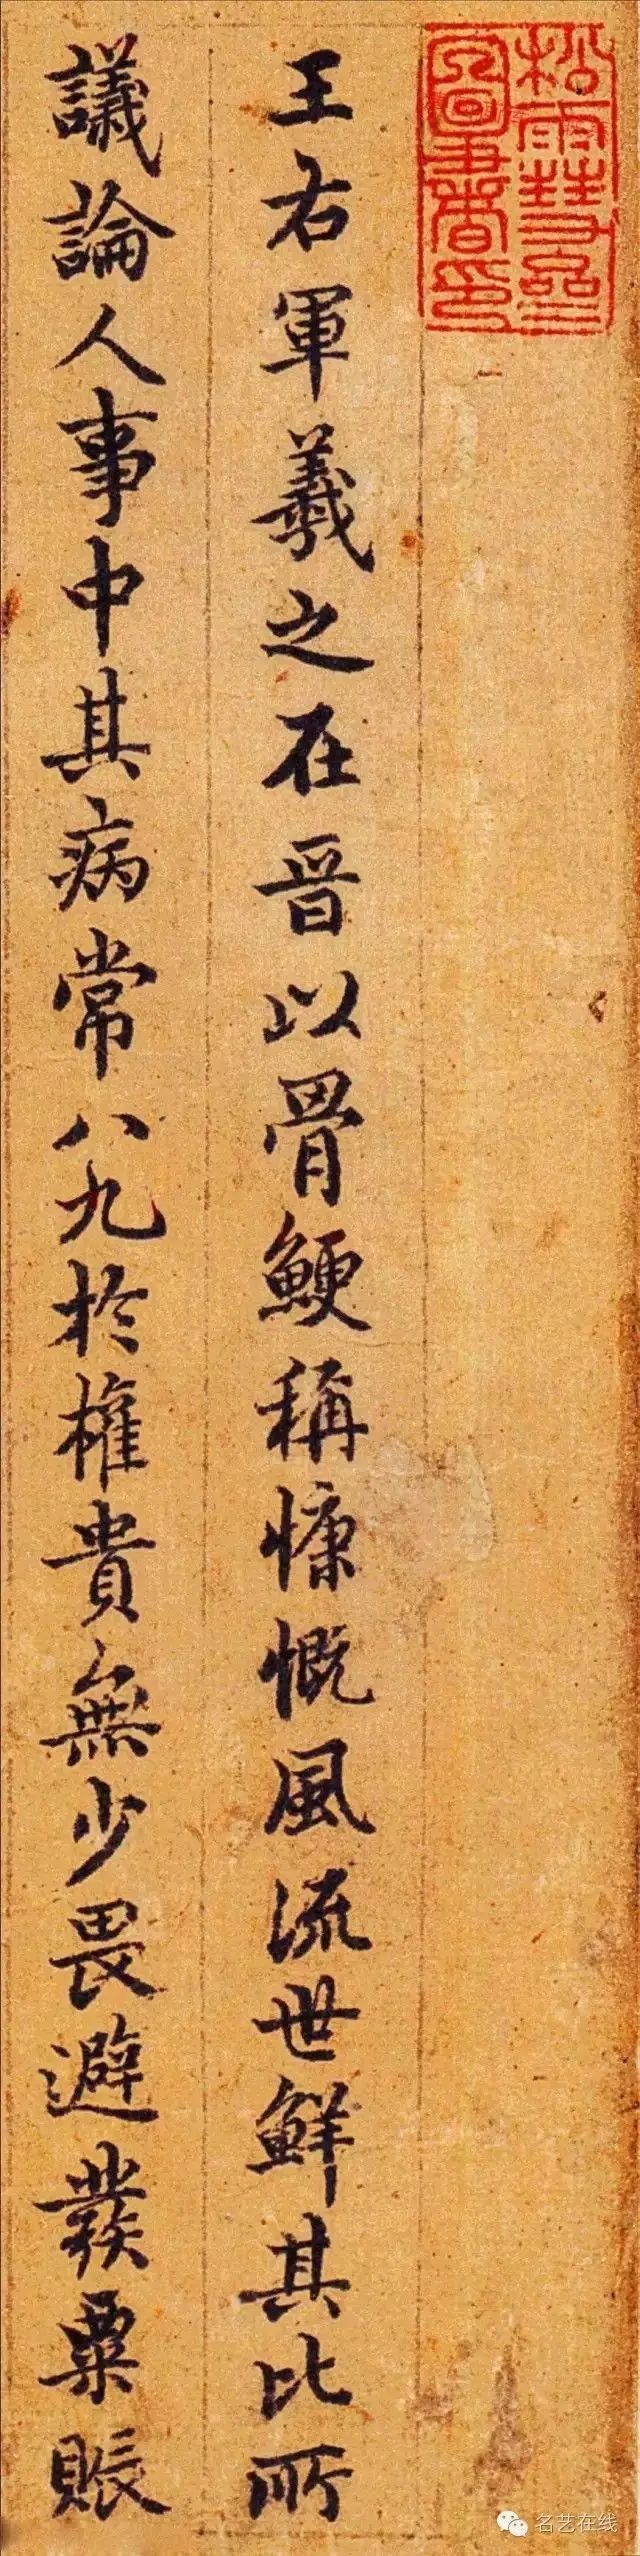 王右軍羲之在晉以骨鯁稱慷慨風流世鮮其比所
議論人事中其病常八九於權貴無少畏避發粟賑
名艺在线